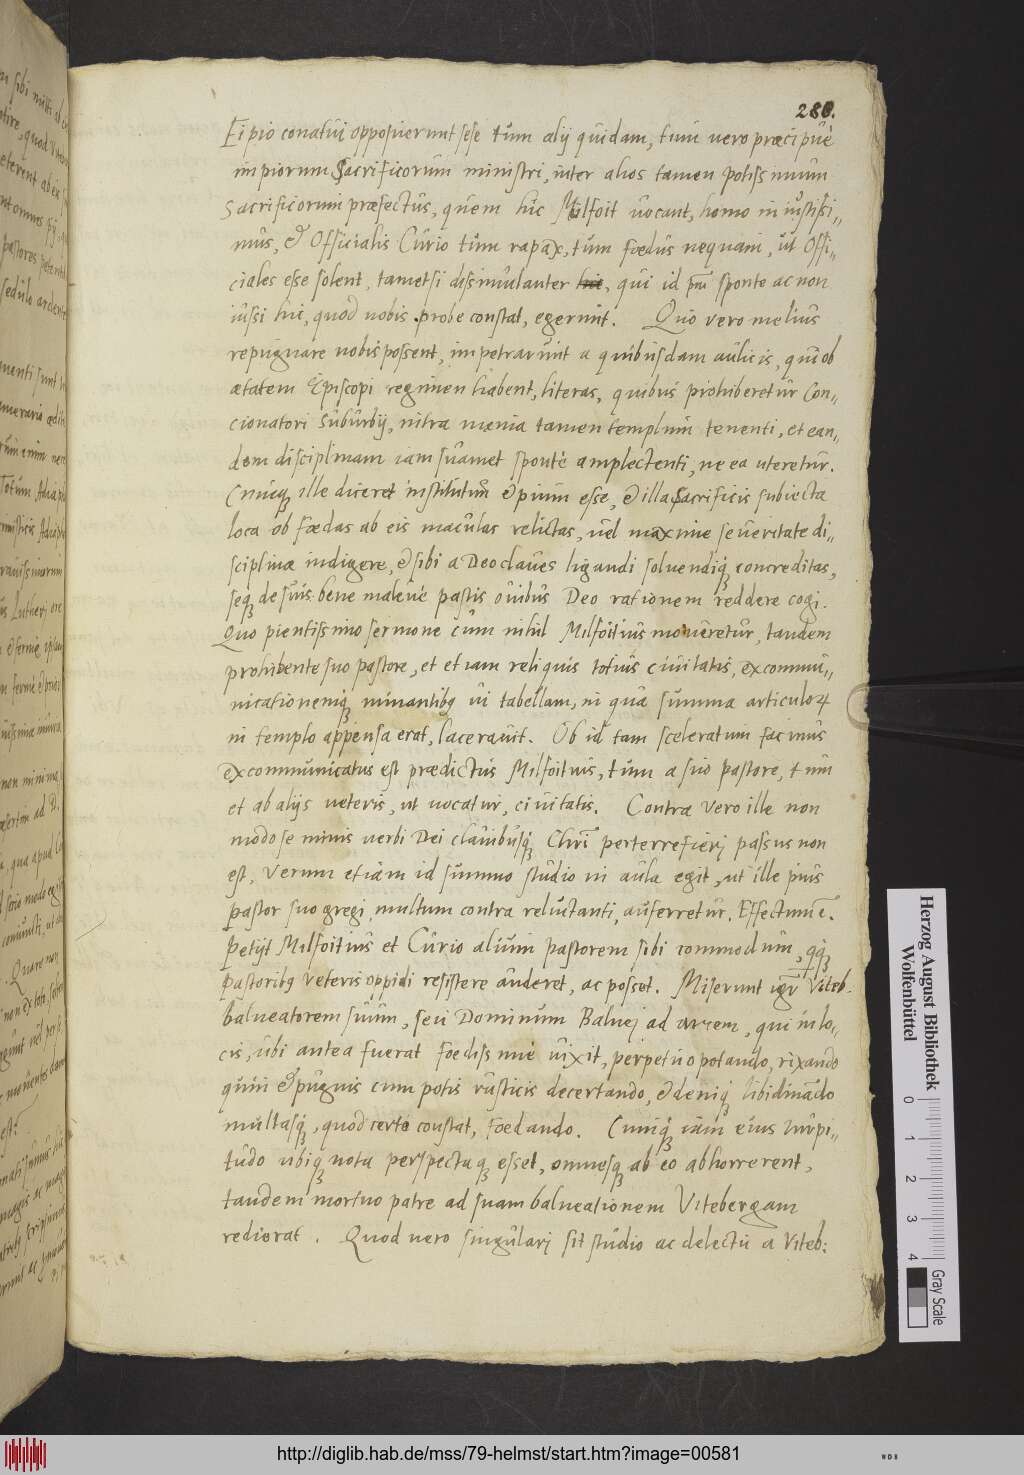 280.
Ei pio conatui opposuerunt sese tum alij quidam, tum uero præcipuè
impiorum Sacrificorum ministri, inter alios tamen potissimum
Sacrificorum præfectus, quem hic Milfoit uocant, homo in iustissi„
mus, & Officialis Curio tum rapax, tum fœdus nequam, ut Offi„
ciales esse solent, tametsi dissimulanter hic, qui id sponte ac non
iussi hic, quod nobis probe constat, egerunt. Quo vero melius
repugnare nobis possent, impetrarunt a quibusdam aulicis, qui ob
ætatem Episcopi regimen habent, literas, quibus prohiberetur Con„
cionatori suburbij, intra mœnia tamen templum tenenti, et ean„
dem disciplinam iam suamet sponte amplectenti, ne ea uteretur.
Cumq ille diceret institutum & pium esse, & illa Sacrificis subiecta
loca ob fœdas ab eis maculas relictas, uel maxime seueritate di„
sciplinæ indigere, & sibi a Deo claues ligandi soluendiq concreditas,
seq de suis bene maleue pastis ouibus Deo rationem reddere cogi.
Quo pientissimo sermone cum nihil Milfoitius moueretur, tandem
prohibente suo pastore, et etiam reliquis totius ciuitatis, excommu„
nicationemq minantibq ui tabellam, in qua summa articuloꝝ
in templo appensa erat, lacerauit. Ob id tam sceleratum facinus
excommunicatus est prædictus Milfoitius, tum a suo pastore, tum
et ab alijs ueteris, ut uocatur, ciuitatis. Contra vero ille non
modo se minis uerbi Dei clauibusq Chri perterrefieri passus non
est, Verum etiam id summo studio in aula egit, ut ille pius
pastor suo gregi multum contra reluctanti, auferretur. Effectum ē.
Petijt Milfoitius et Curio alium pastorem sibi commodum,
pastoribq veteris oppidi resistere auderet, ac posset. Miserunt Viteb.
balneatorem suum, seu Dominum Balnej ad arcem, qui in lo„
cis, ubi antea fuerat fœdissime uixit, perpetuo potando, rixando
quin & pugnis cum potis rusticis decertando, & deniq libidinando
multasq, quod certo constat, fœdando. Cumq iam eius turpi„
tudo ubiq nota perspectaq esset, omnesq ab eo abhorrerent,
tandem mortuo patre ad suam balneationem Vitebergam
redierat. Quod uero singulari sit studio ac delectu a Viteb:
Herzog August Bibliothek
Wolfenbüttel
0 1 2 3 4
Gray Scale
http://diglib.hab.de/mss/79-helmst/start.htm?image=00581